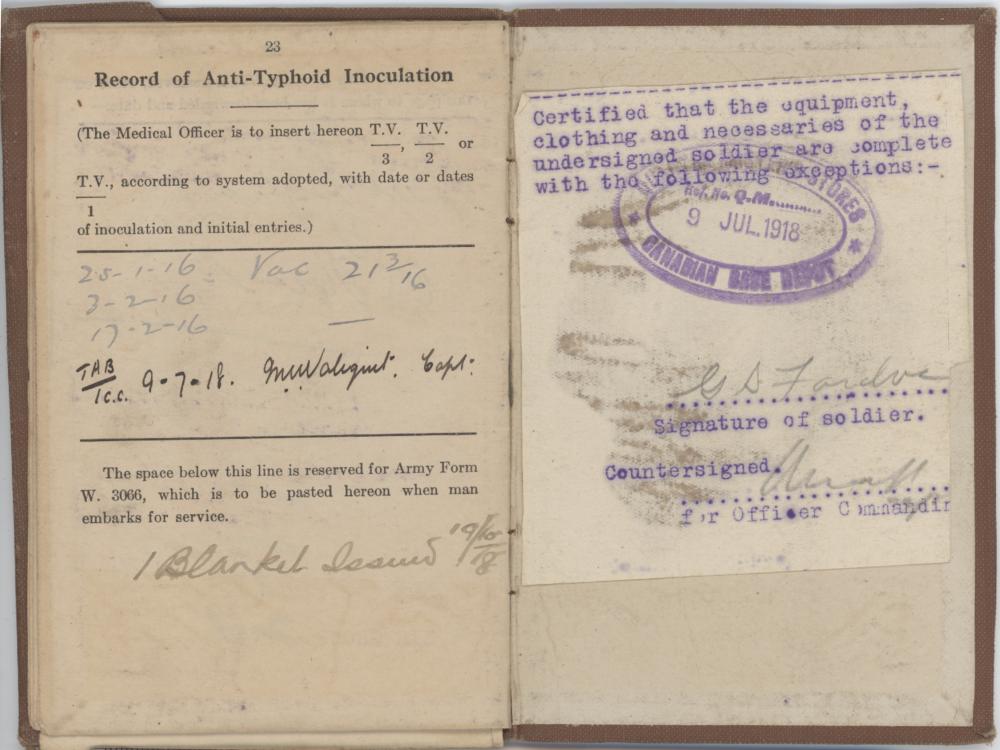 23
Record of Anti-Typhoid Inoculation
(The Medical Officer is to insert hereon T.V./3, T.V./2 or
T.V./1, according to system adopted, with date or dates
of inoculation and initial entries.)
25-1-16 Vac 21 3/16
3-2-16
17-2-16 —
TAB/1c.c. 9-7-18. Capt.
The space below this line is reserved for Army Form
W. 3066, which is to be pasted hereon when man
embarks for service.
1 Blanket Issued 19/10/18
Certified that the equipment,
clothing and necessaries of the
undersigned soldier are complete
with the following exceptions:-
STORES
Ref. No. Q.M.
9 JUL. 1918
CANADIAN BASE DEPOT
G S
Signature of soldier.
Countersigned.
for Officer Commandin